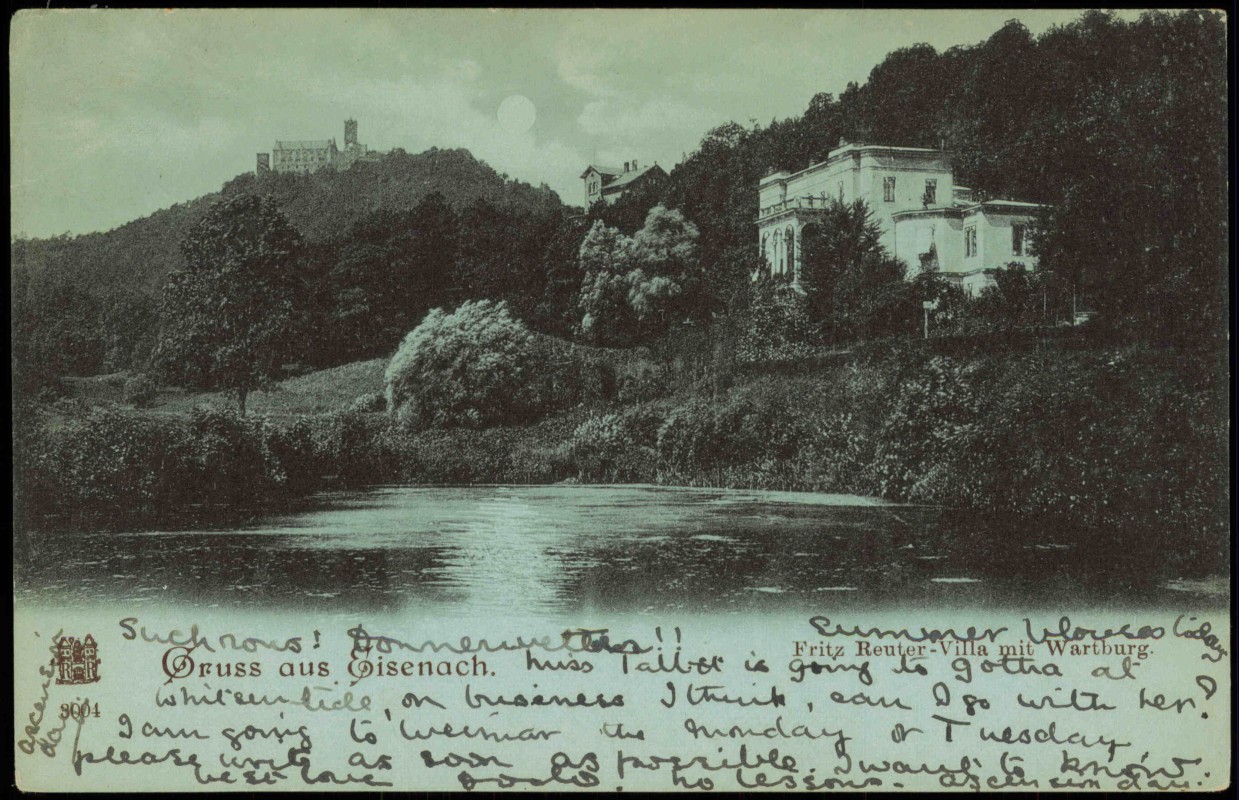 Such rows! Donnerwetter!! Summer blouses today
Fritz Reuter-Villa mit Wartburg.
Gruss aus Eisenach. Miss Talbot is going to Gotha at
Whitsuntide, on business I think, can I go with her?
3004
I am going to Weimar the Monday or Tuesday
please write as soon as possible. I want to know.
best love no lessons - ascension day.
ascension day